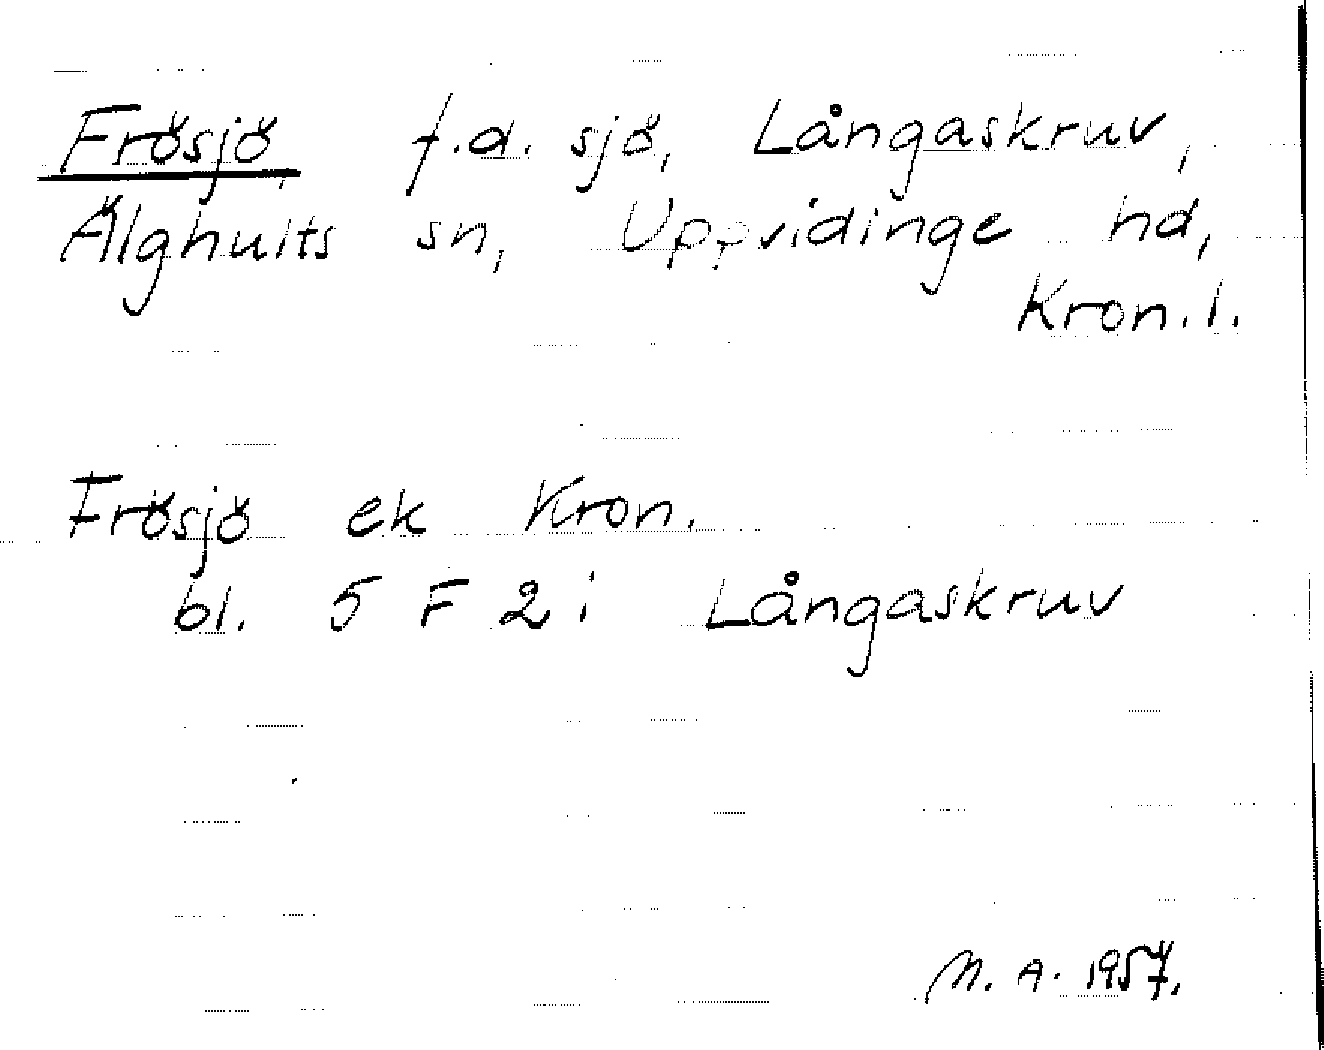 Frösjö f.d. sjö, Långaskruv,
Älghults sn, Uppvidinge hd,
Kron. l.
Frösjö ek Kron.
bl. 5 F 2 i Långaskruv
M. A. 1957.